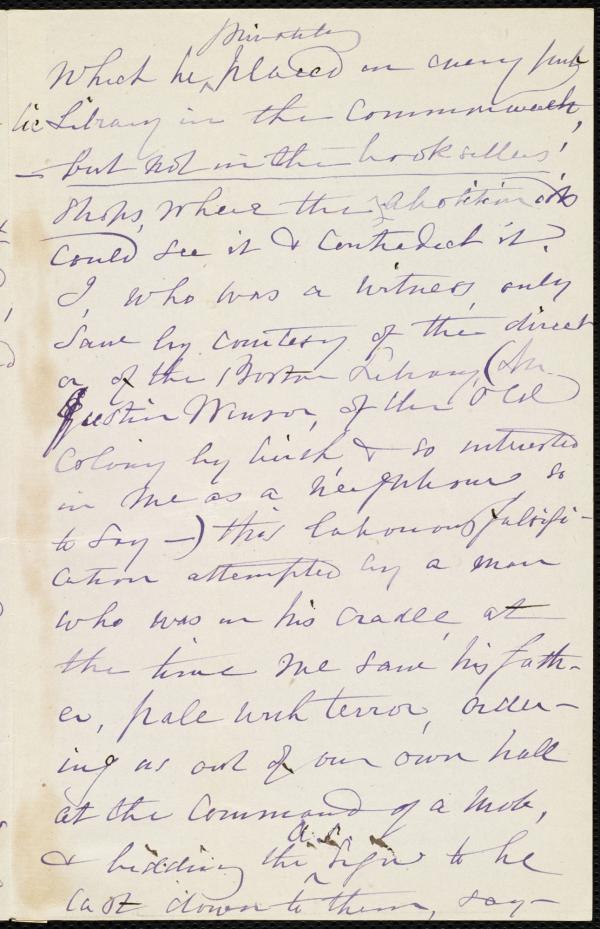 privately
which he ^ placed in every pub-
lic Library in the Commonwealth,
— but not in the booksellers'
shops, where the abolitionists
could see it & contradict it.
I, who was a witness, only
saw by courtesy of the direct
or of the Boston Library, (Mr
Justin Winsor, of the Old
Colony by birth & so interested
in me as a neighbour so
to say —) this labourous falsifi-
cation attempted by a man
who was in his cradle, at
the time we saw his fath-
er, pale with terror, order-
ing us out of our own hall
at the command of a mob,
A. S.
& bidding the ^ sign to be
cast down to them, say-